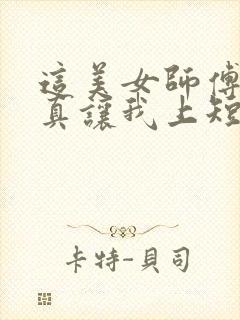 這美女師傅
真讓我上短
卡特-貝司